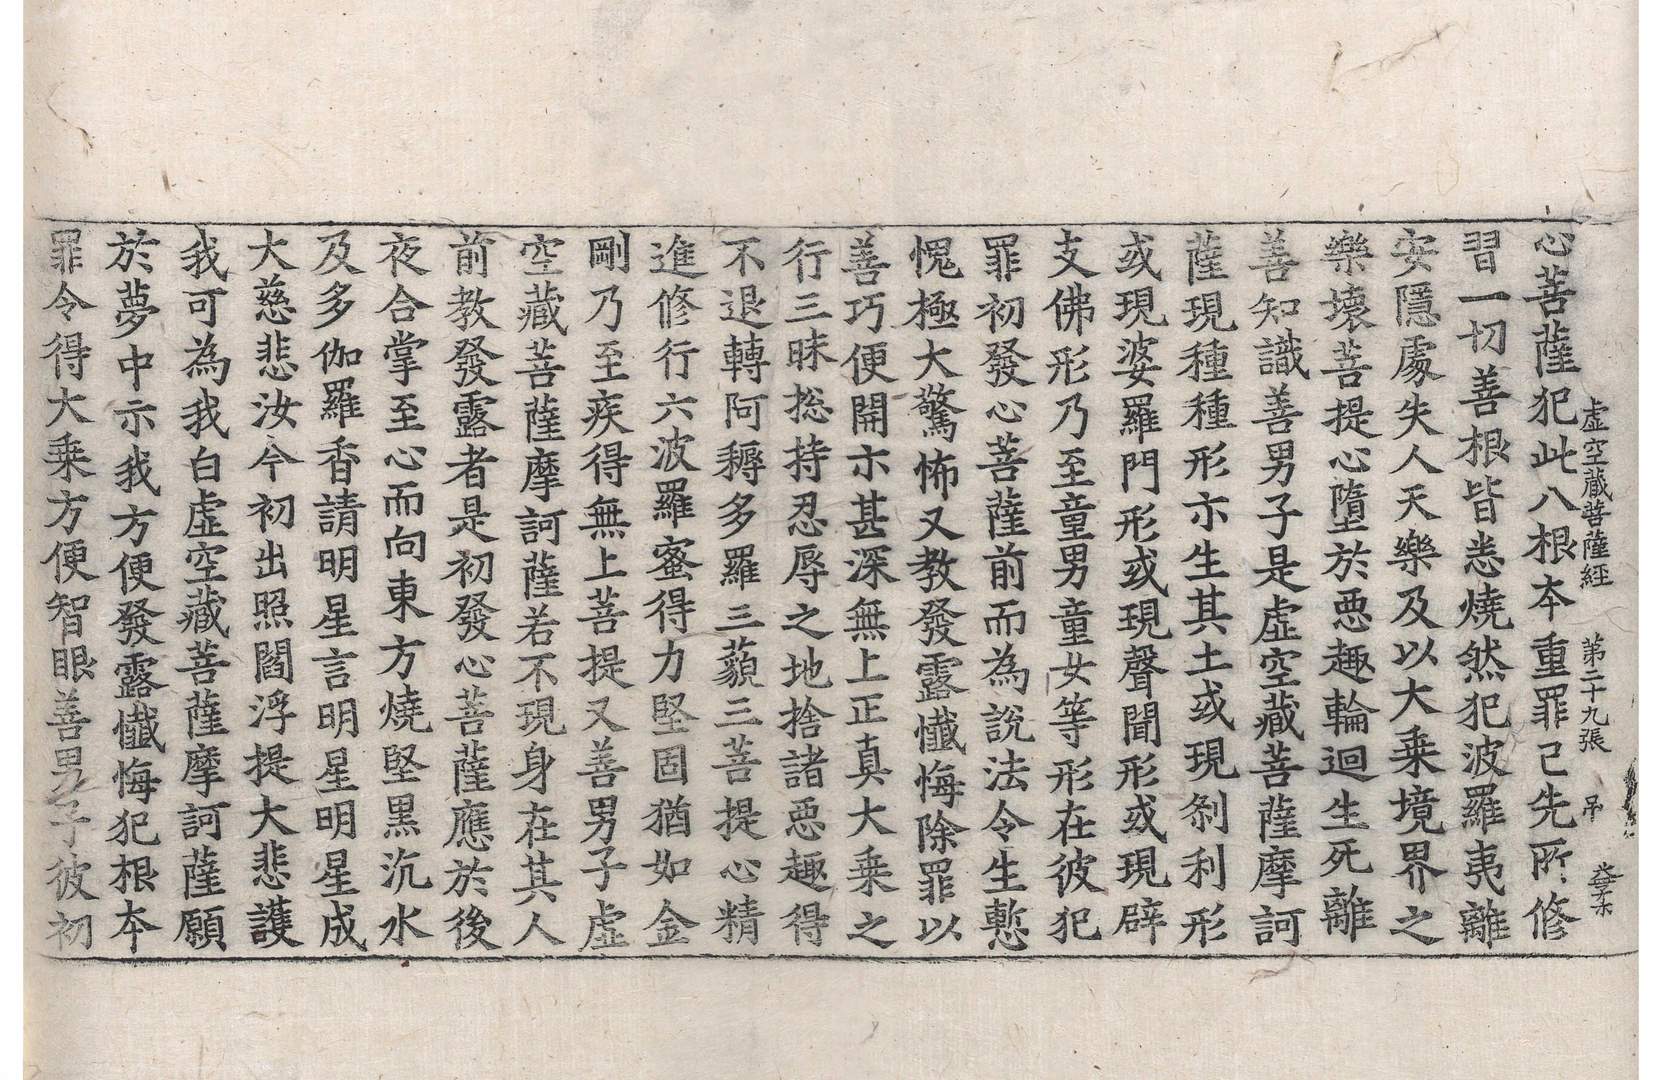 虛空藏菩薩經 第二十九張 吊
心菩薩犯此八根本重罪己先所修
習一切善根皆悉燒然犯波羅夷離
安隱處失人天樂及以大乗境界之
樂壊菩提心墮於惡趣輪迴生死離
善知識善男子是虛空藏菩薩摩訶
薩現種種形示生其土或現剎利形
或現婆羅門形或現聲聞形或現辟
支佛形乃至童男童女等形在彼犯
罪初發心菩薩前而為說法令生慙
愧極大驚怖又教發露懺悔除罪以
善巧便開示甚深無上正真大乗之
行三昧捴持忍辱之地捨諸惡趣得
不退轉阿耨多羅三藐三菩提心精
進修行六波羅蜜得力堅固猶如金
剛乃至疾得無上菩提又善男子虛
空藏菩薩摩訶薩若不現身在其人
前教發露者是初發心菩薩應於後
夜合掌至心而向東方燒堅黑沉水
及多伽羅香請明星言明星明星成
大慈悲汝今初出照閻浮提大悲護
我可為我白虛空藏菩薩摩訶薩願
於夢中示我方便發露懺悔犯根本
罪令得大乗方便智眼善男子彼初